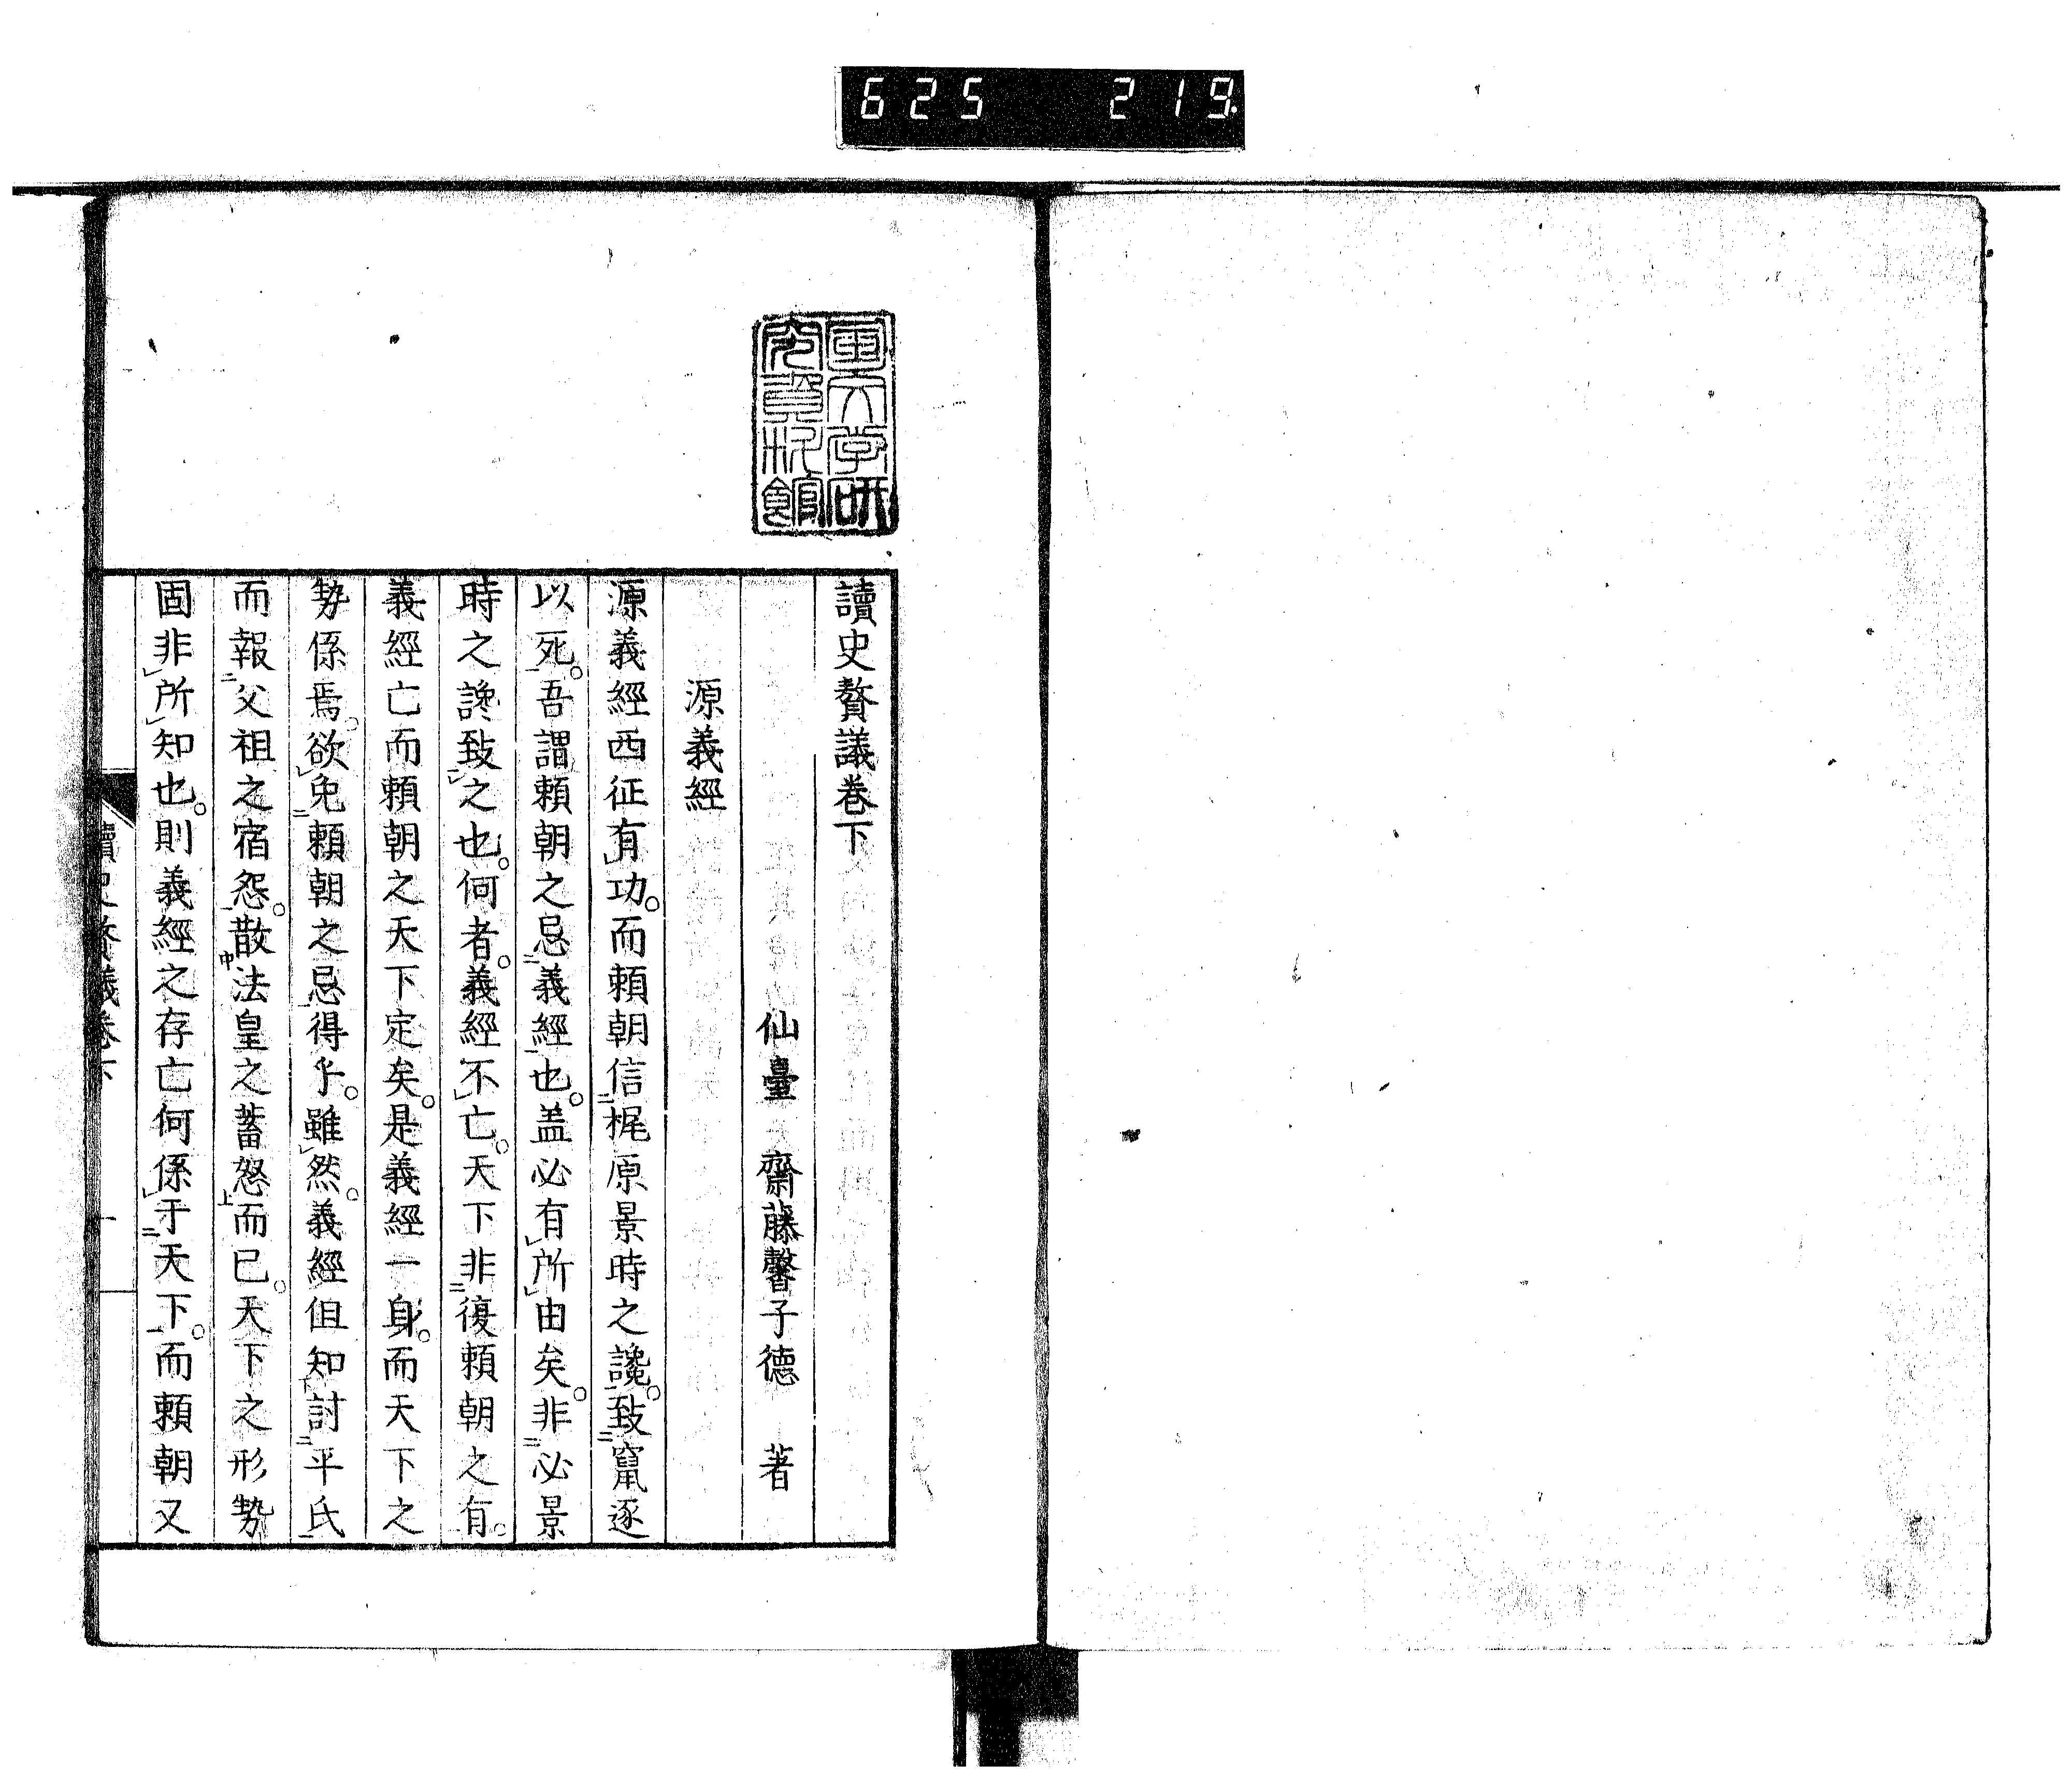 625 219.
国文学研
究資料館
讀史贅議巻下
仙臺 齋藤馨子德 著
源義經
源義經西征有功。而頼朝信梶原景時之讒。致竄逐
以死。吾謂頼朝之忌義經也。盖必有所由矣。非必景
時之讒致之也。何者。義經不亡。天下非復頼朝之有。
義經亡而頼朝之天下定矣。是義經一身。而天下之
勢係焉。欲免頼朝之忌得乎。雖然。義經但知討平氏
而報父祖之宿怨。散法皇之蓄怒而已。天下之形勢
固非所知也。則義經之存亡何係于天下。而頼朝又
讀史贅議巻下 一